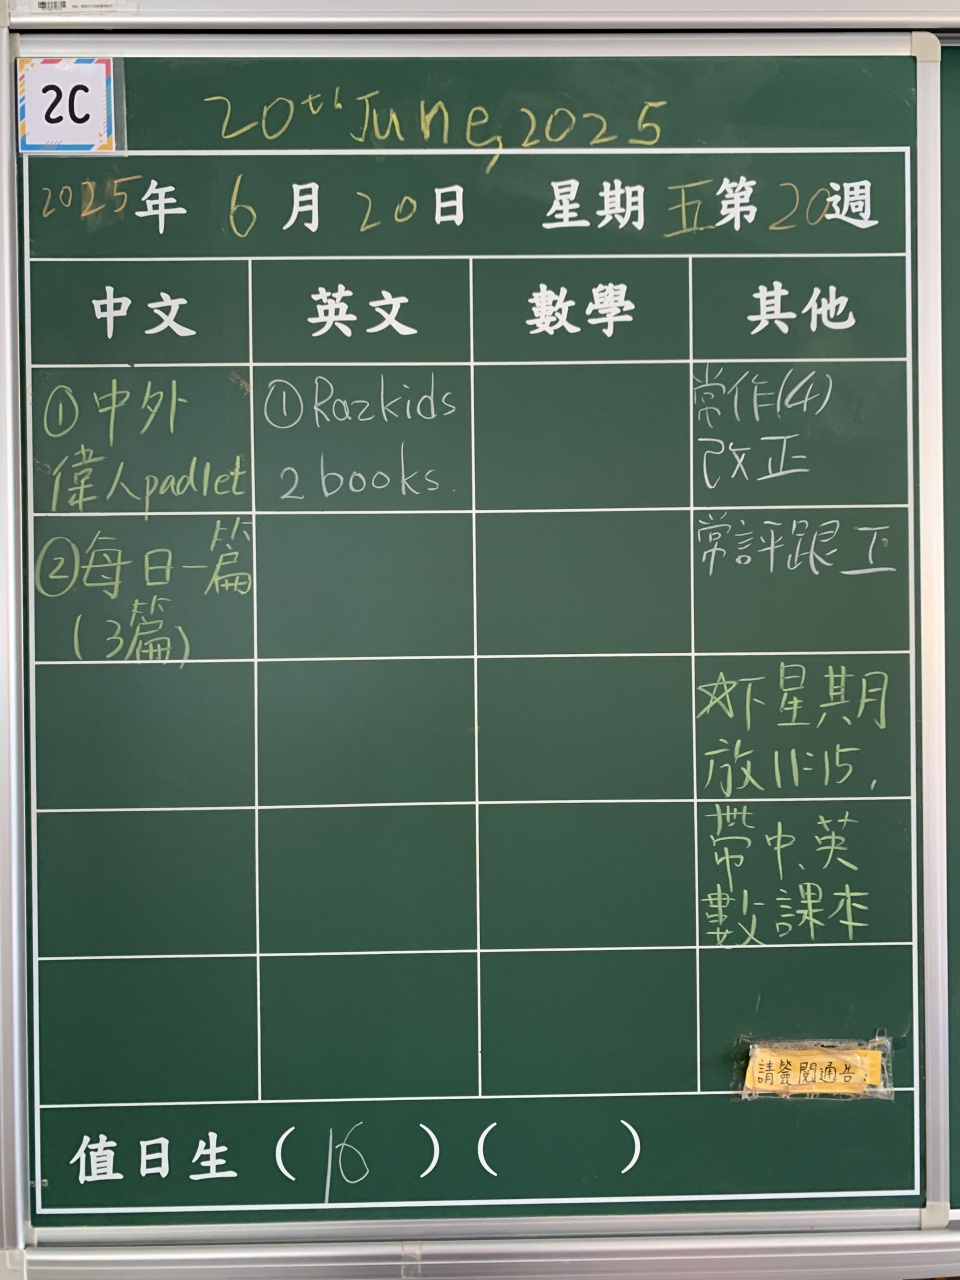 2C
20th June, 2025
2025年 6月 20日 星期五第20週
中文 英文 數學 其他
①中外
偉人padlet
①Razkids
2 books.
常作(4)
改正
②每日一篇
(3篇)
常評跟正
☆下星期月
放11:15,
帶中、英
數課本
請簽閱通告:
值日生 (16) ( )